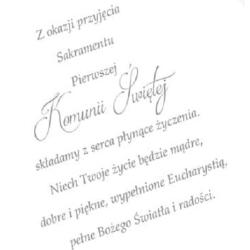 Z okazji przyjęcia
Sakramentu
Pierwszej
Komunii Świętej
składamy z serca płynące życzenia.
Niech Twoje życie będzie mądre,
dobre i piękne, wypełnione Eucharystią,
pełne Bożego Światła i radości.